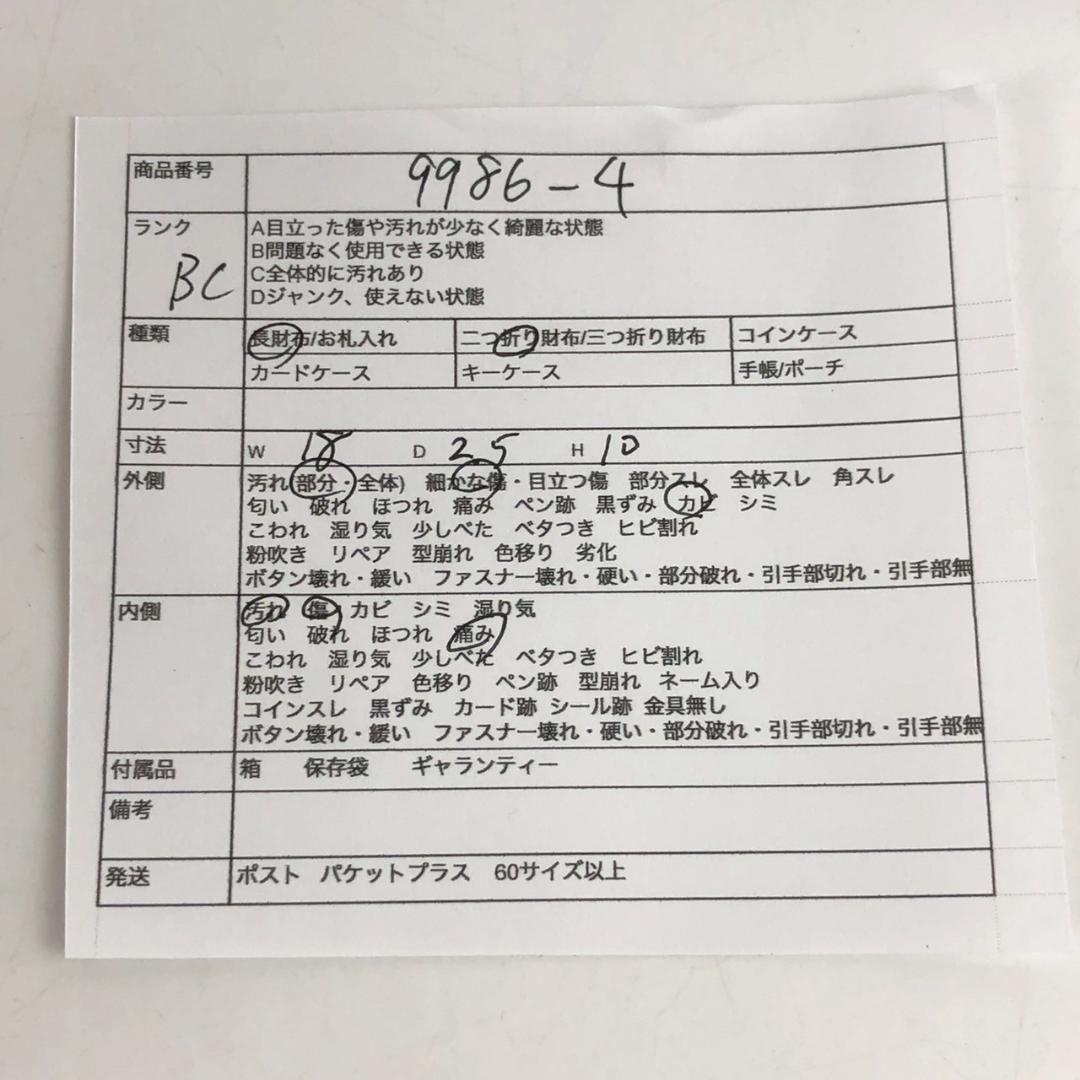 商品番号 9986-4
ランク BC
A目立った傷や汚れが少なく綺麗な状態
B問題なく使用できる状態
C全体的に汚れあり
Dジャンク、使えない状態
種類 長財布/お札入れ 二つ折り財布/三つ折り財布 コインケース
カードケース キーケース 手帳/ポーチ
カラー
寸法 W 18 D 2.5 H 10
外側 汚れ(部分・全体) 細かな傷・目立つ傷 部分スレ 全体スレ 角スレ
匂い 破れ ほつれ 痛み ペン跡 黒ずみ カビ シミ
こわれ 湿り気 少しべた ベタつき ヒビ割れ
粉吹き リペア 型崩れ 色移り 劣化
ボタン壊れ・緩い ファスナー壊れ・硬い・部分破れ・引手部切れ・引手部無
内側 汚れ 傷 カビ シミ 湿り気
匂い 破れ ほつれ 痛み
こわれ 湿り気 少しべた ベタつき ヒビ割れ
粉吹き リペア 色移り ペン跡 型崩れ ネーム入り
コインスレ 黒ずみ カード跡 シール跡 金具無し
ボタン壊れ・緩い ファスナー壊れ・硬い・部分破れ・引手部切れ・引手部無
付属品 箱 保存袋 ギャランティー
備考
発送 ポスト パケットプラス 60サイズ以上